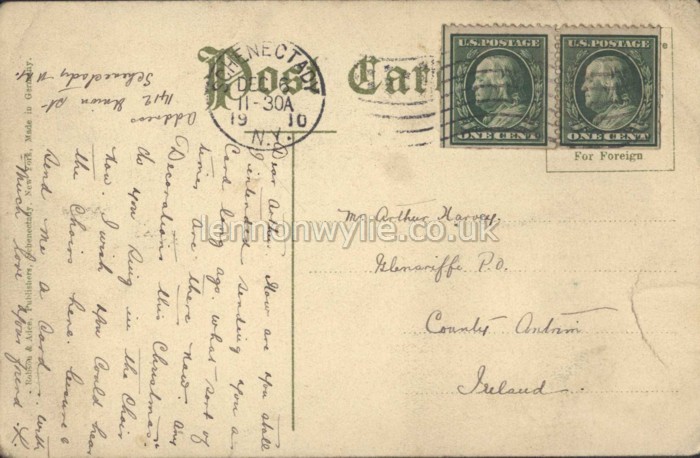 Post Card
SCHENECTADY
DE
11-30A
19 10
N.Y.
U.S. POSTAGE
ONE CENT
U.S. POSTAGE
ONE CENT
For Foreign
Mr Arthur Harvey,
Glenariffe P.O.
County Antrim
Ireland.
Address
1412 Union St
Schenectady N.Y.
Dear Arthur. How are you
I intended sending you a
Card long ago. what sort of
times are there now. Any
Decorations this Christmas.
do you sing in the Choir
now. I wish you could hear
the Choirs here. be sure &
Send me a Card. with
much love your friend
Robson & Adee, Publishers, Schenectady, New York, Made in Germany.
lennonwylie.co.uk